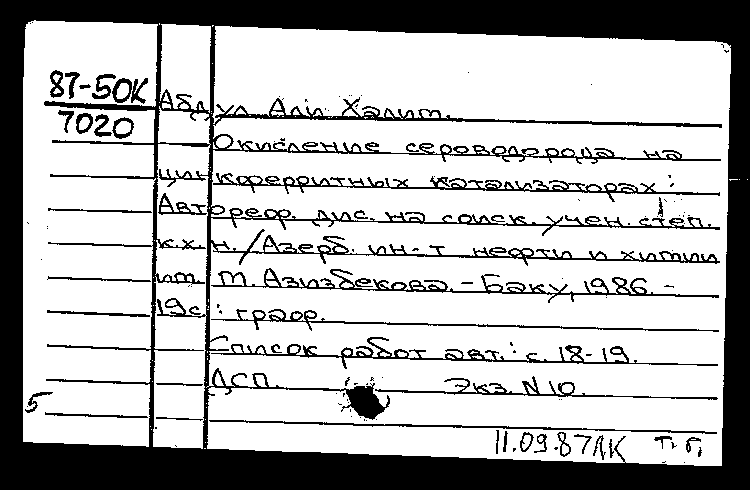 87-50К
7020
Абдул Али Халит.
Окисление сероводорода на
цинкферритных катализаторах :
Автореф. дис. на соиск. учен. степ.
к.х.н. /Азерб. ин-т нефти и химии
им. М. Азизбекова. – Баку, 1986. –
19с. : граф.
Список работ авт. : с. 18-19.
ДСП. Экз. N 10.
5
11.09.87ЛК Т. П.